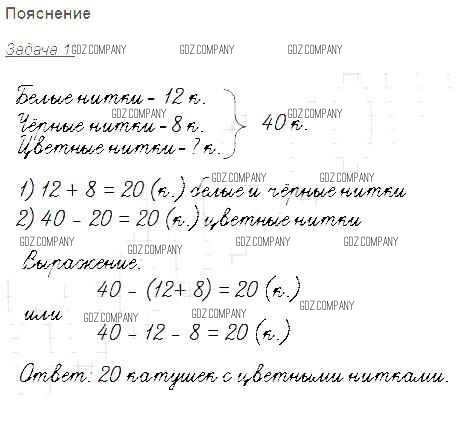 Пояснение
Задача 1 GDZ.COMPANY GDZ.COMPANY GDZ.COMPANY
Белые нитки - 12 к.
GDZ.COMPANY GDZ.COMPANY
Чёрные нитки - 8 к. 40 к.
Цветные нитки - ? к.
GDZ.COMPANY GDZ.COMPANY
1) 12 + 8 = 20 (к.) белые и чёрные нитки
2) 40 - 20 = 20 (к.) цветные нитки
GDZ.COMPANY GDZ.COMPANY GDZ.COMPANY GDZ.COMPANY
Выражение:
40 - (12+ 8) = 20 (к.)
GDZ.COMPANY
или GDZ.COMPANY GDZ.COMPANY
40 - 12 - 8 = 20 (к.)
Ответ: 20 катушек с цветными нитками.